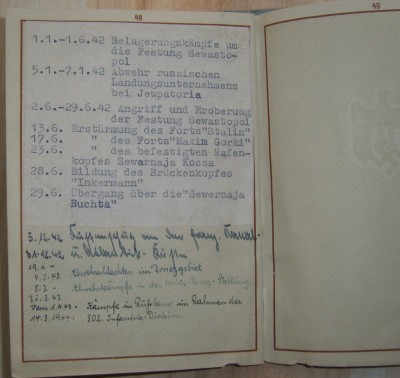 40
1.1.-1.6.42 Belagerungskämpfe um
die Festung Sewasto-
pol
5.1.-7.1.42 Abwehr russischen
Landungsunternehmens
bei Jewpatoria
2.6.-29.6.42 Angriff und Eroberung
der Festung Sewastopol
13.6. Erstürmung des Forts"Stalin"
17.6. " des Forts"Maxim Gorki"
23.6. " des befestigten Hafen-
kopfes Sewarnaja Kosna
28.6. Bildung des Brückenkopfes
"Inkermann"
29.6. Übergang über die"Sewernaja
Buchta"
3.12.42 an der franz. Kanal-
31.12.42 u. Küste
19.1.-
4.3.43. Abwehrschlachten im Donezgebiet
5.3.- Abwehrkämpfe in der Stellung
31.3.43.
Vom 1.4.43- Kämpfe in Rußland im Rahmen der
14.3.1944: 302. Infanterie-Division